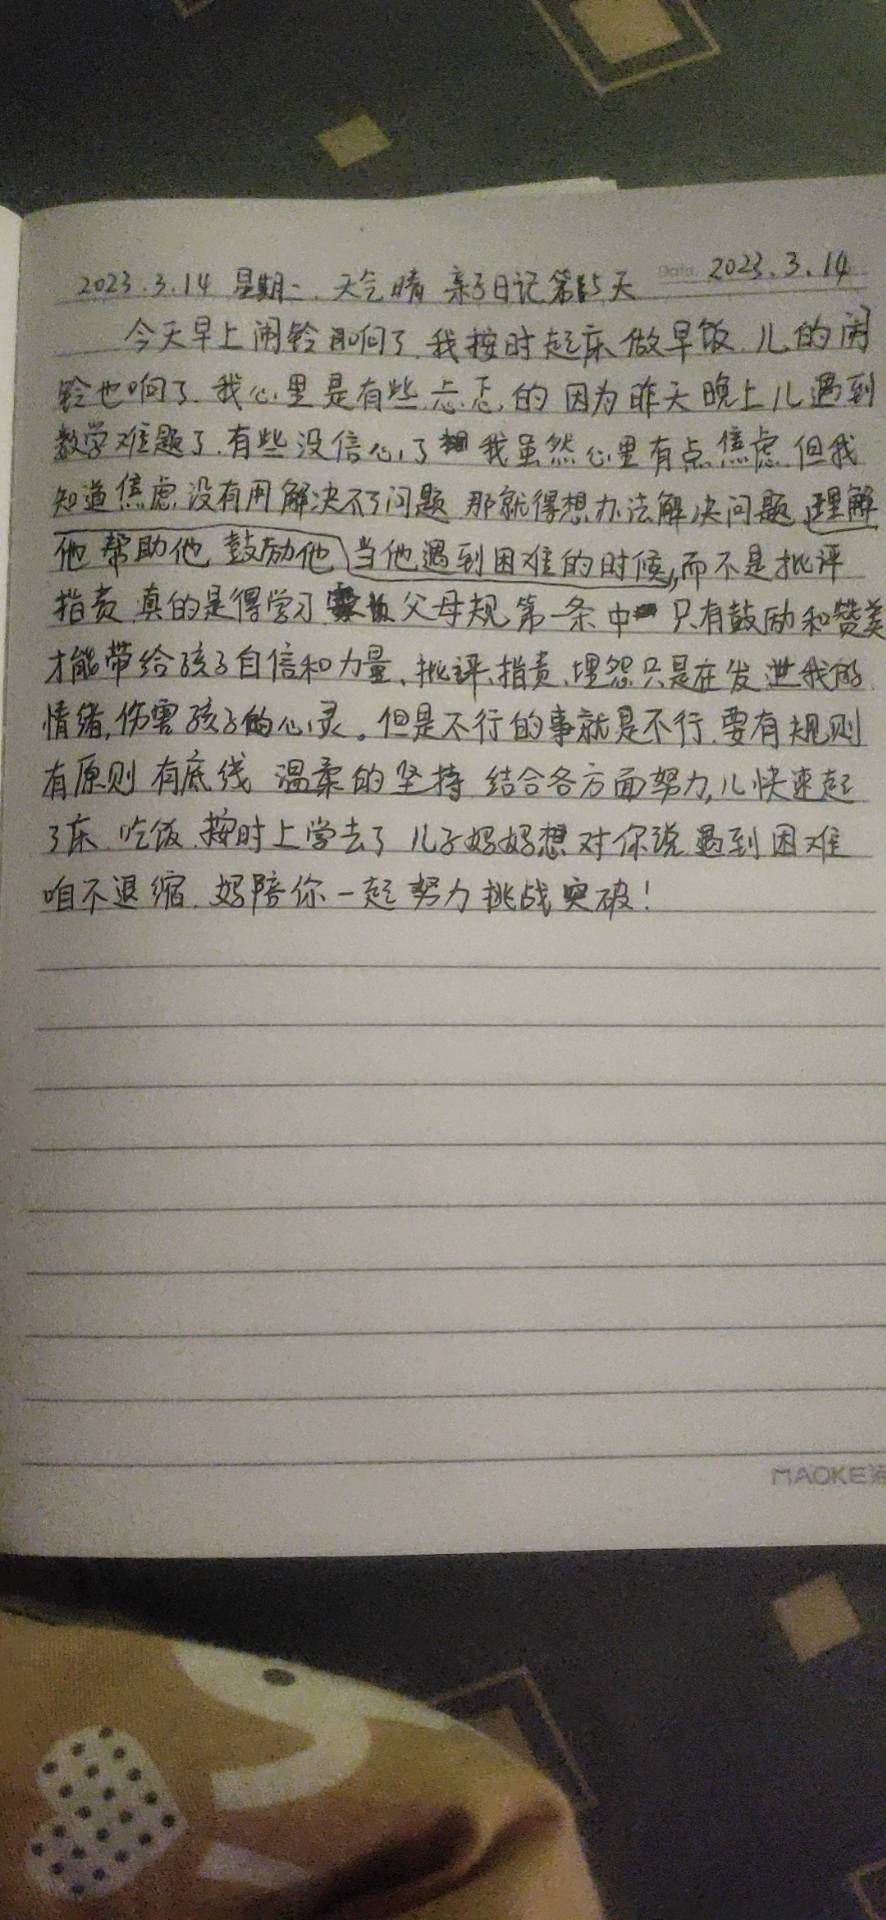 2023.3.14
2023.3.14 星期二. 天气晴 亲子日记第15天
今天早上闹铃响了.我按时起床做早饭.儿的闹
铃也响了.我心里是有些忐忑的因为昨天晚上儿遇到
数学难题了.有些没信心了 我虽然心里有点焦虑.但我
知道焦虑没有用解决不了问题 那就得想办法解决问题 理解
他帮助他 鼓励他 当他遇到困难的时候,而不是批评
指责 真的是得学习 父母规第一条中 只有鼓励和赞美
才能带给孩子自信和力量、批评、指责、埋怨只是在发泄我的
情绪,伤害孩子的心灵。但是不行的事就是不行.要有规则
有原则 有底线 温柔的坚持 结合各方面努力,儿快速起
了床 吃饭.按时上学去了 儿子妈妈想对你说遇到困难
咱不退缩.妈陪你一起努力挑战突破!
MAOKE